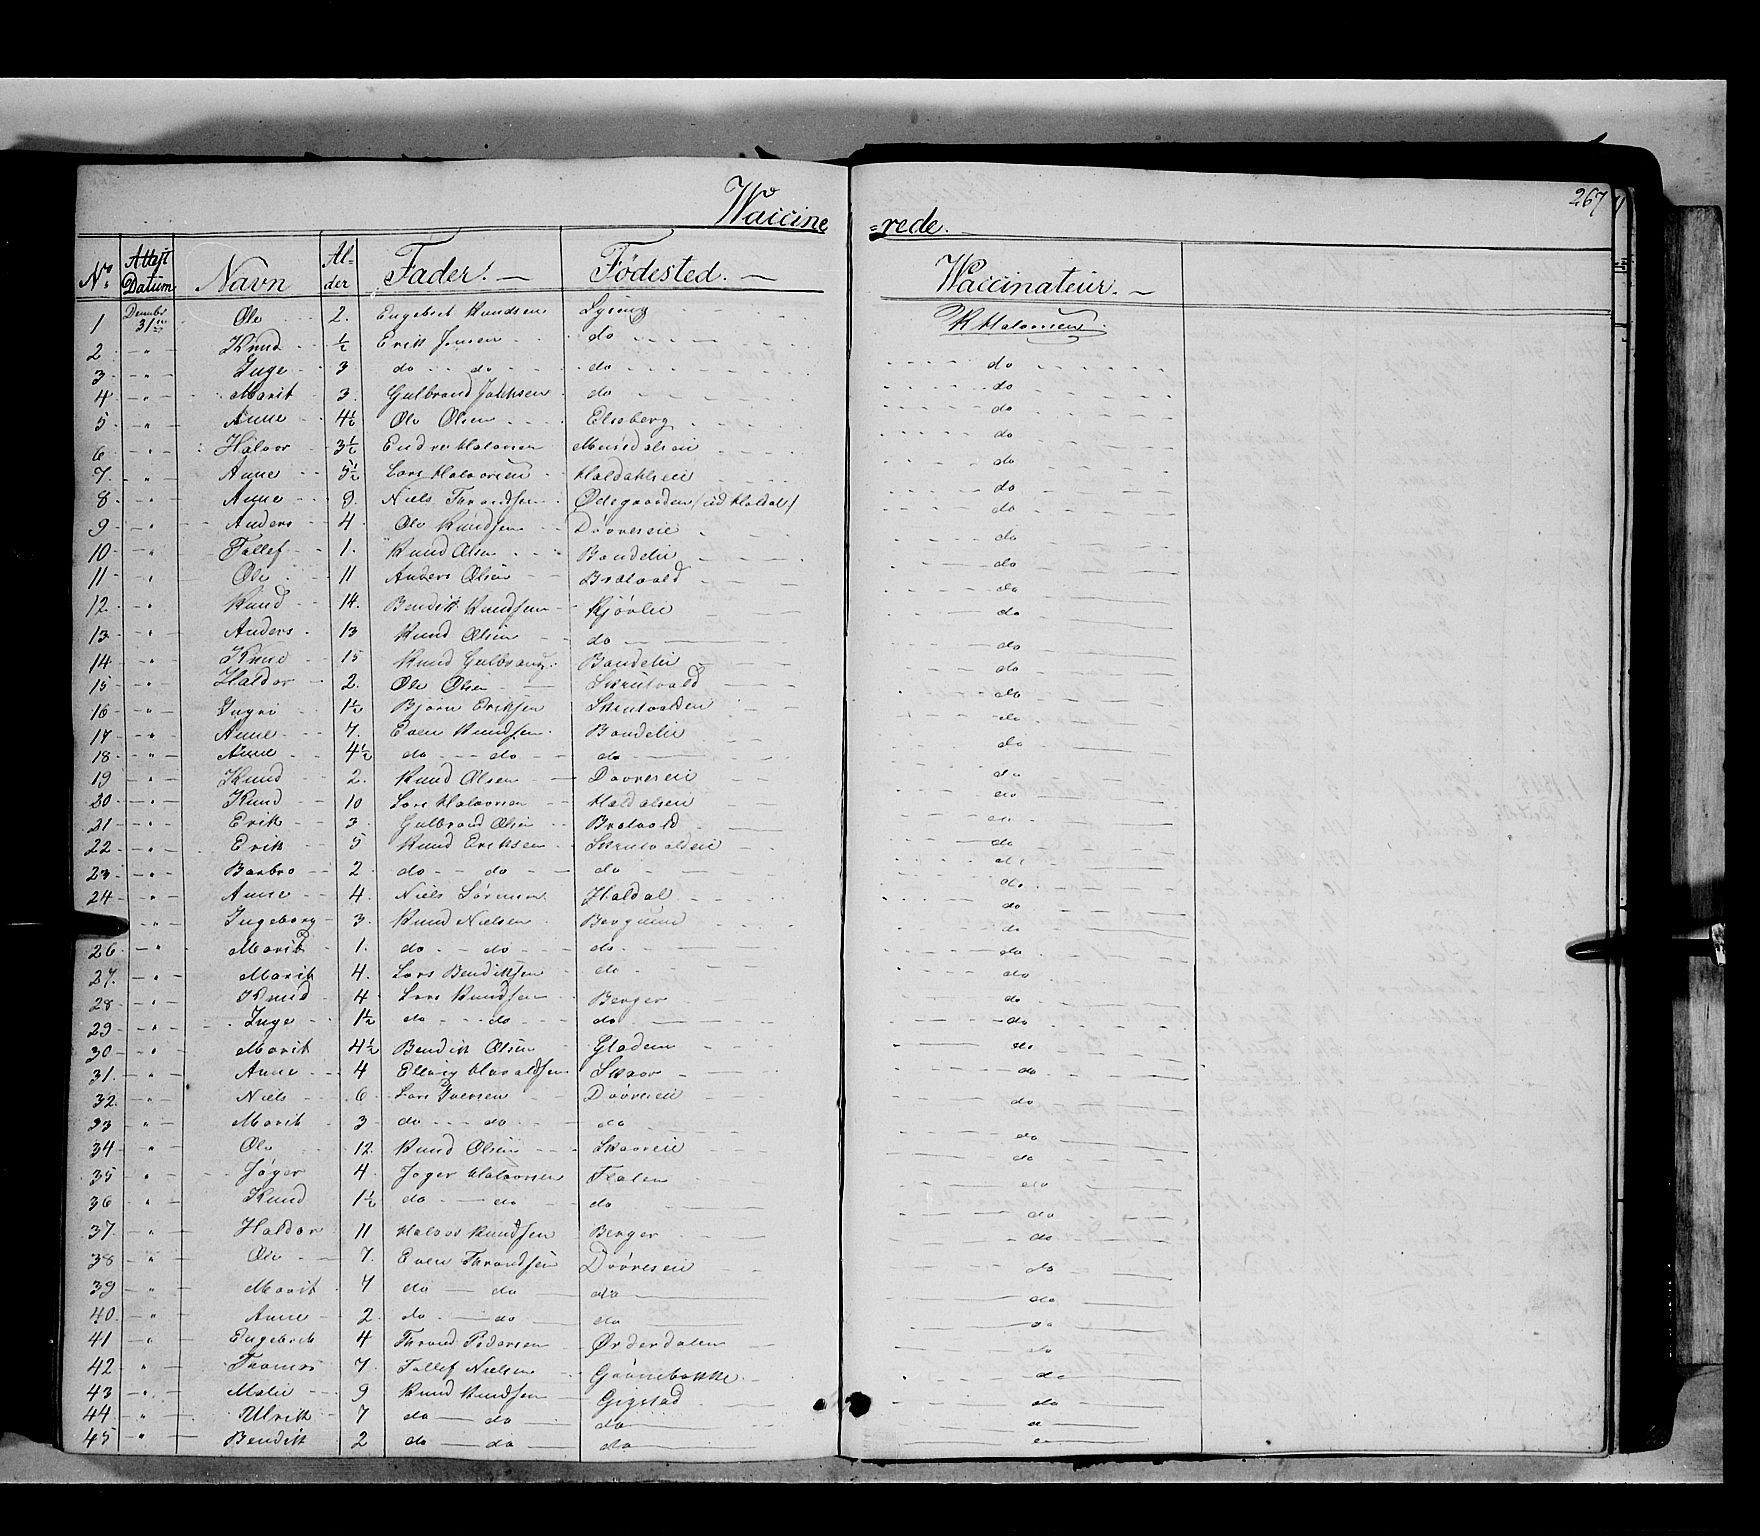 267
Waccine =rede.
No. Attest Datum Navn Al-der Fader. Fødested. Waccinateur.
1 Decembr 31te Ole 2. Engebret Knudsen Lysing K Halvorsen
2 - " - Knud ½ Erik Jensen do do
3 - " - Inge 3 do do do do
4 - " - Marit 3. Gulbrand do do
5 - " - Anne 4½ Ole Olsen Elseberg do
6 - " - Halvor 3½ Endre Halvorsen do
7 - " - Anne 5½ Lars Halvorsen Haldahlseie do
8 - " - Anne 9 Niels Throndsen Ødegaarden do
9 - " - Anders 4 Ole Knudsen Døvreseie do
10 - " - Tollef 1. Knud Olsen Baudelie do
11 - " - Ole 11 Anders Olsen Bratvold do
12 - " - Knud 14. Bendik Knudsen Kjøvlie do
13 - " - Anders 13 Knud Olsen do do
14 - " - Knud 15 Knud Gulbrands. Baudelie do
15 - " - Haldor 2. Ole Olsen Skrutvold do
16 - " - Ingri 1½ Bjørn Eriksen Skrutvolden do
17 - " - Anne 7. Even Knudsen Baudelie do
18 - " - Anne 4½ do do do do
19 - " - Knud 2. Knud Olsen Dovreseie do
20 - " - Knud 10 Lars Halvorsen Haldalseie do
21 - " - Erik 3 Gulbrand Olsen Bratvold do
22 - " - Erik 5 Knud Eriksen Skrutvolden do
23 - " - Barbro 2 do do do do
24 - " - Anne 4. Niels Sørensen Haldal do
- " - Ingeborg 3. Knud Nielsen Bergene do
26 - " - Marit 1. do do do do
27. - " - Marit 4. Lars Bendiksen do do
28 - " - Knud 4 Lars Knudsen Berger do
29 - " - Inge 1½ do do do do
30 - " - Marit 4½ Bendik Olsen Gladem do
31. - " - Anne 4 Haraldsen Skaar do
32. - " - Niels 6 Lars Iversen Døvreseie do
33 - " - Marit 3 do do do do
34 - " - Ole 12. Knud Olsen Skaareie do
35 - " - Jøger 4. Jøger Halvorsen Flaten do
36 - " - Knud 1½ do do do do
37 - " - Haldor 11 Halvor Knudsen Berger do
38 - " - Ole 7. Even Throndsen Døvreseie do
39 - " - Marit 7 do do do do
40 - " - Anne 2. do do do do
41 - " - Engebret 4 Thrond Pedersen Ørderdalen do
42 - " - Thomas 7 Tollef Nielsen do
43 - " - Malie 9 Knud Knudsen Gigstad do
44 - " - Ulrik 7 do do do
45 - " - Bendik 2 do do do